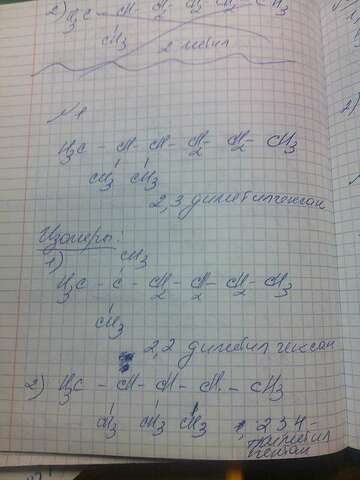 2) H3C - CH - CH2 - CH2 - CH2 - CH3
CH3 2 метил
№1
H3C - CH - CH - CH2 - CH2 - CH3
CH3 CH3
2,3 диметилгексан
Изомеры:
1) CH3
H3C - C - CH2 - CH2 - CH2 - CH3
CH3
2,2 диметил гексан
2) H3C - CH - CH - CH - CH3
CH3 CH3 CH3 2 3 4 -
триметил
пентан